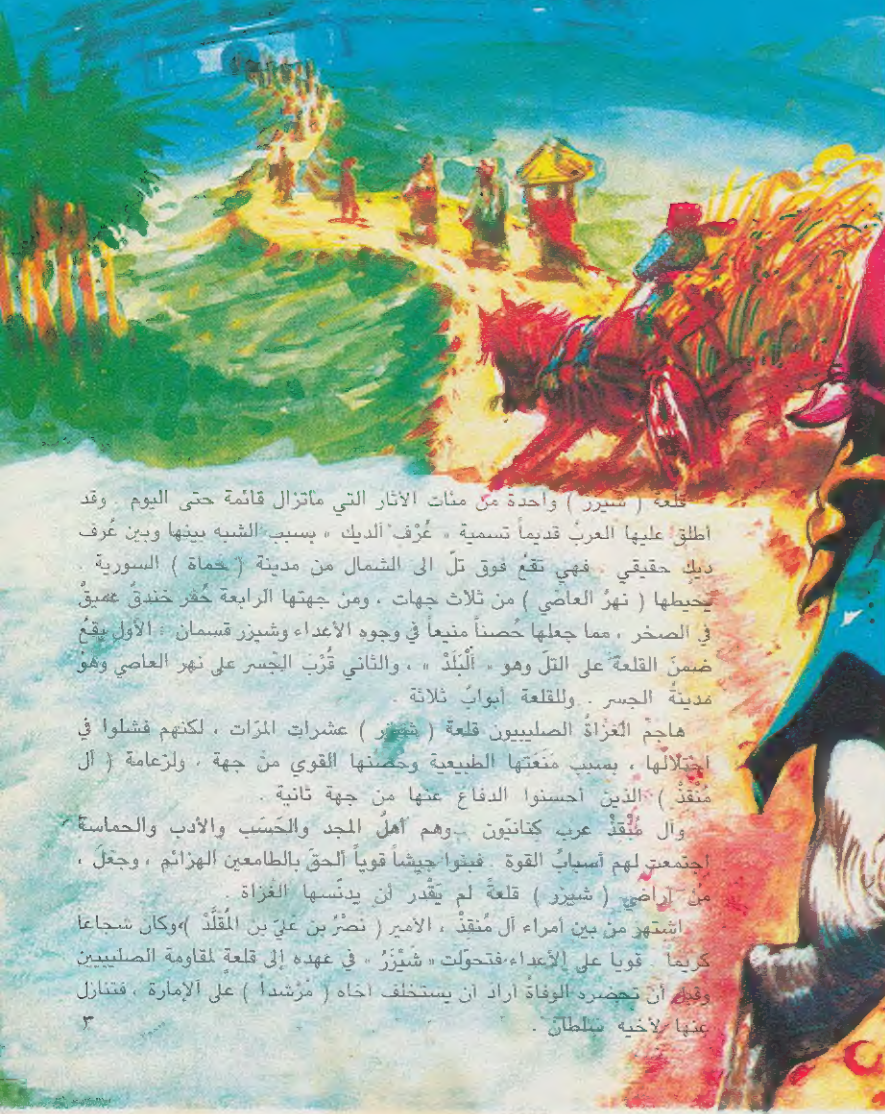 قلعة ( شيزر ) واحدة من مئات الآثار التي ماتزال قائمة حتى اليوم . وقد
أطلق عليها العربُ قديماً تسمية « عُرْف الديك » بسبب الشبه بينها وبين عُرف
ديك حقيقي . فهي تقعُ فوق تلّ الى الشمال من مدينة ( حماة ) السورية .
يحيطها ( نهرُ العاصي ) من ثلاث جهات ، ومن جهتها الرابعة حُفر خندقٌ عميقٌ
في الصخر ، مما جعلها حُصناً منيعاً في وجوه الأعداء وشيزر قسمان : الأول يقعُ
ضمنَ القلعة على التلّ وهو « اَلْبَلَدْ » ، والثاني قُرْبَ الجسر على نهر العاصي وهو
مدينةُ الجسر . وللقلعة أبوابٌ ثلاثة .
هاجمَ الغُزاةُ الصليبيون قلعة ( شيزر ) عشرات المرّات ، لكنهم فشلوا في
احتلالها ، بسبب مَنَعَتها الطبيعية وحصنها القوي من جهة ، ولزعامة ( آل
مُنْقذْ ) الذين أحسنوا الدفاع عنها من جهة ثانية .
وآل مُنْقذْ عرب كِنانيّون . وهم أهلُ المجد والحَسَب والأدب والحماسة
اجتمعت لهم أسبابُ القوة . فبنوا جيشاً قوياً ألحقَ بالطامعين الهزائم ، وجعلَ ،
من أراضي ( شيزر ) قلعةً لم يَقْدر أن يدنّسها الغزاة .
اشتهر من بين أمراء آل مُنقذْ ، الأمير ( نصْرُ بن عليّ بن المُقلَّدْ ) وكان شجاعا
كريما . قويا على الأعداء فتحوّلت « شَيْزَرُ » في عهده إلى قلعةٍ لمقاومة الصليبيين
وقبل أن تحضره الوفاةُ أراد ان يستخلف أخاه ( مُرْشداً ) على الإمارة ، فتنازل
عنها لأخيه سلطان .
٣